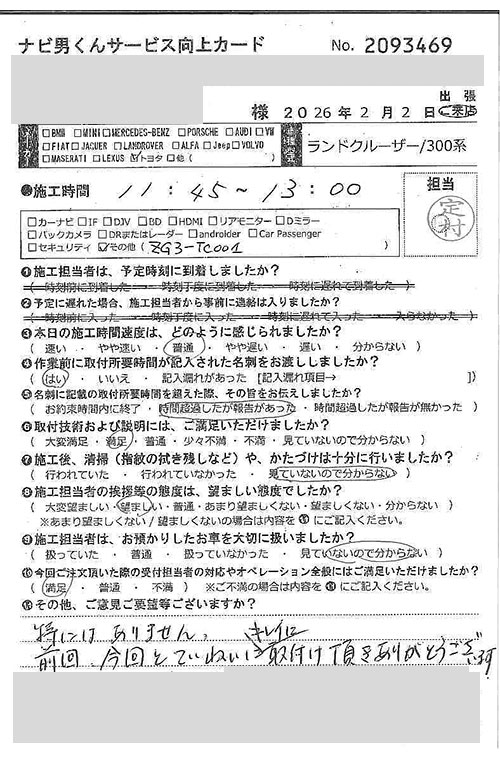 ナビ男くんサービス向上カード No. 2093469
出張
様 2026年2月2日 ご来店
□BMW □MINI □MERCEDES-BENZ □PORSCHE □AUDI □VW
□FIAT □JAGUER □LANDROVER □ALFA □Jeep □VOLVO
□MASERATI □LEXUS ☑トヨタ □他 ( )
ランドクルーザー/300系
●施工時間 11:45~13:00
担当
定村
□カーナビ □IF □DJV □BD □HDMI □リアモニター □Dミラー
□バックカメラ □DRまたはレーダー □androider □Car Passenger
□セキュリティ ☑その他 ( ZG3-TC001 )
❶施工担当者は、予定時刻に到着しましたか?
( 時刻前に到着した ・ 時刻丁度に到着した ・ 時刻に遅れて到着した )
❷予定に遅れた場合、施工担当者から事前に連絡は入りましたか?
( 時刻前に入った ・ 時刻丁度に入った ・ 時刻に遅れて入った ・ 入らなかった )
❸本日の施工時間速度は、どのように感じられましたか?
( 速い ・ やや速い ・ 普通 ・ やや遅い ・ 遅い ・ 分からない )
❹作業前に取付所要時間が記入された名刺をお渡ししましたか?
( はい ・ いいえ ・ 記入漏れがあった [記入漏れ項目→ ])
❺名刺に記載の取付所要時間を超えた際、その旨をお伝えしましたか?
( お約束時間内に終了 ・ 時間超過したが報告があった ・ 時間超過したが報告が無かった )
❻取付技術および説明には、ご満足いただけましたか?
( 大変満足 ・ 満足 ・ 普通 ・ 少々不満 ・ 不満 ・ 見ていないので分からない )
❼施工後、清掃(指紋の拭き残しなど)や、かたづけは十分に行いましたか?
( 行われていた ・ 行われていなかった ・ 見ていないので分からない )
❽施工担当者の挨拶等の態度は、望ましい態度でしたか?
( 大変望ましい ・ 望ましい ・ 普通 ・ あまり望ましくない ・ 望ましくない ・ 分からない )
※あまり望ましくない / 望ましくないの場合は内容を⑪にご記入ください。
❾施工担当者は、お預かりしたお車を大切に扱いましたか?
( 扱っていた ・ 普通 ・ 扱っていなかった ・ 見ていないので分からない )
❿今回ご注文頂いた際の受付担当者の対応やオペレーション全般にはご満足いただけましたか?
( 満足 ・ 普通 ・ 不満 ) ※ご不満の場合は内容を⑪にご記入ください。
⓫その他、ご意見ご要望等ございますか?
特にはありません。 キレイに
前回、今回とていねいに取付け頂きありがとうございます